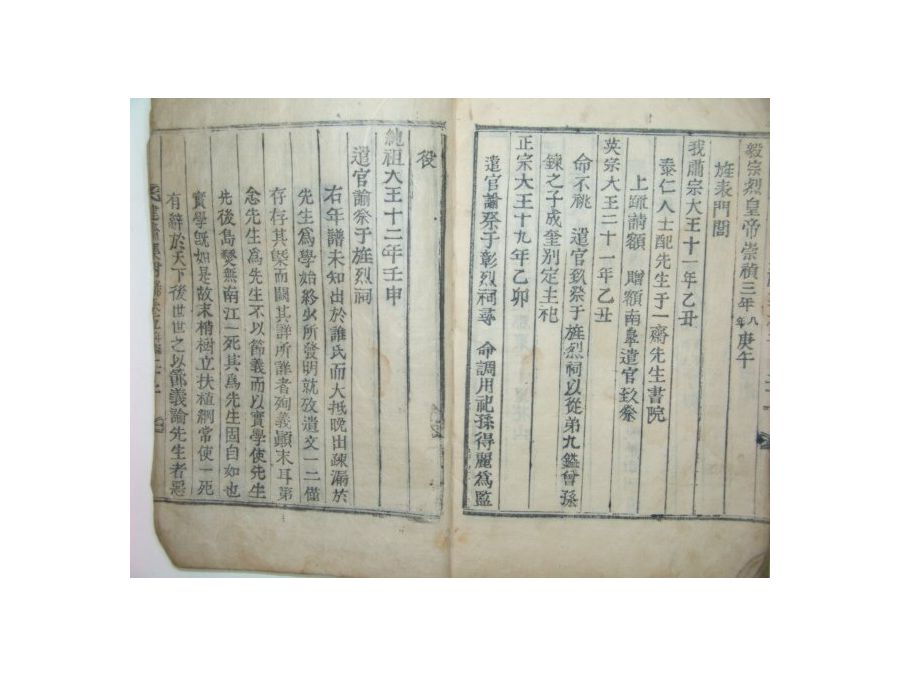 毅宗烈皇帝崇禎三年八年庚午
旌表門閭
我肅宗大王十一年乙丑
泰仁人士配先生于一齋先生書院
上疏請額 贈額南臯遣官致祭
英宗大王二十一年乙丑
命不祧 遣官致祭于旌烈祠以從弟九鎰曾孫
鍊之子成奎別定主祀
正宗大王十九年乙卯
遣官諭祭于彰烈祠尋 命調用祀孫得麗爲監
役
純祖大王十二年壬申
遣官諭祭于旌烈祠
右年譜未知出於誰氏而大抵晚出疎漏於
先生爲學始終少所發明就攷遺文一二僅
存存其槩而闕其詳所詳者殉義顚末耳第
念先生爲先生不以節義而以實學使先生
先後島爕無南江一死其爲先生固自如也
實學旣如是故末梢樹立扶植綱常使一死
有辭於天下後世世之以節義論先生者惡